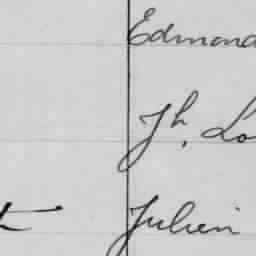 Edmond
Jh. Lo
Julien